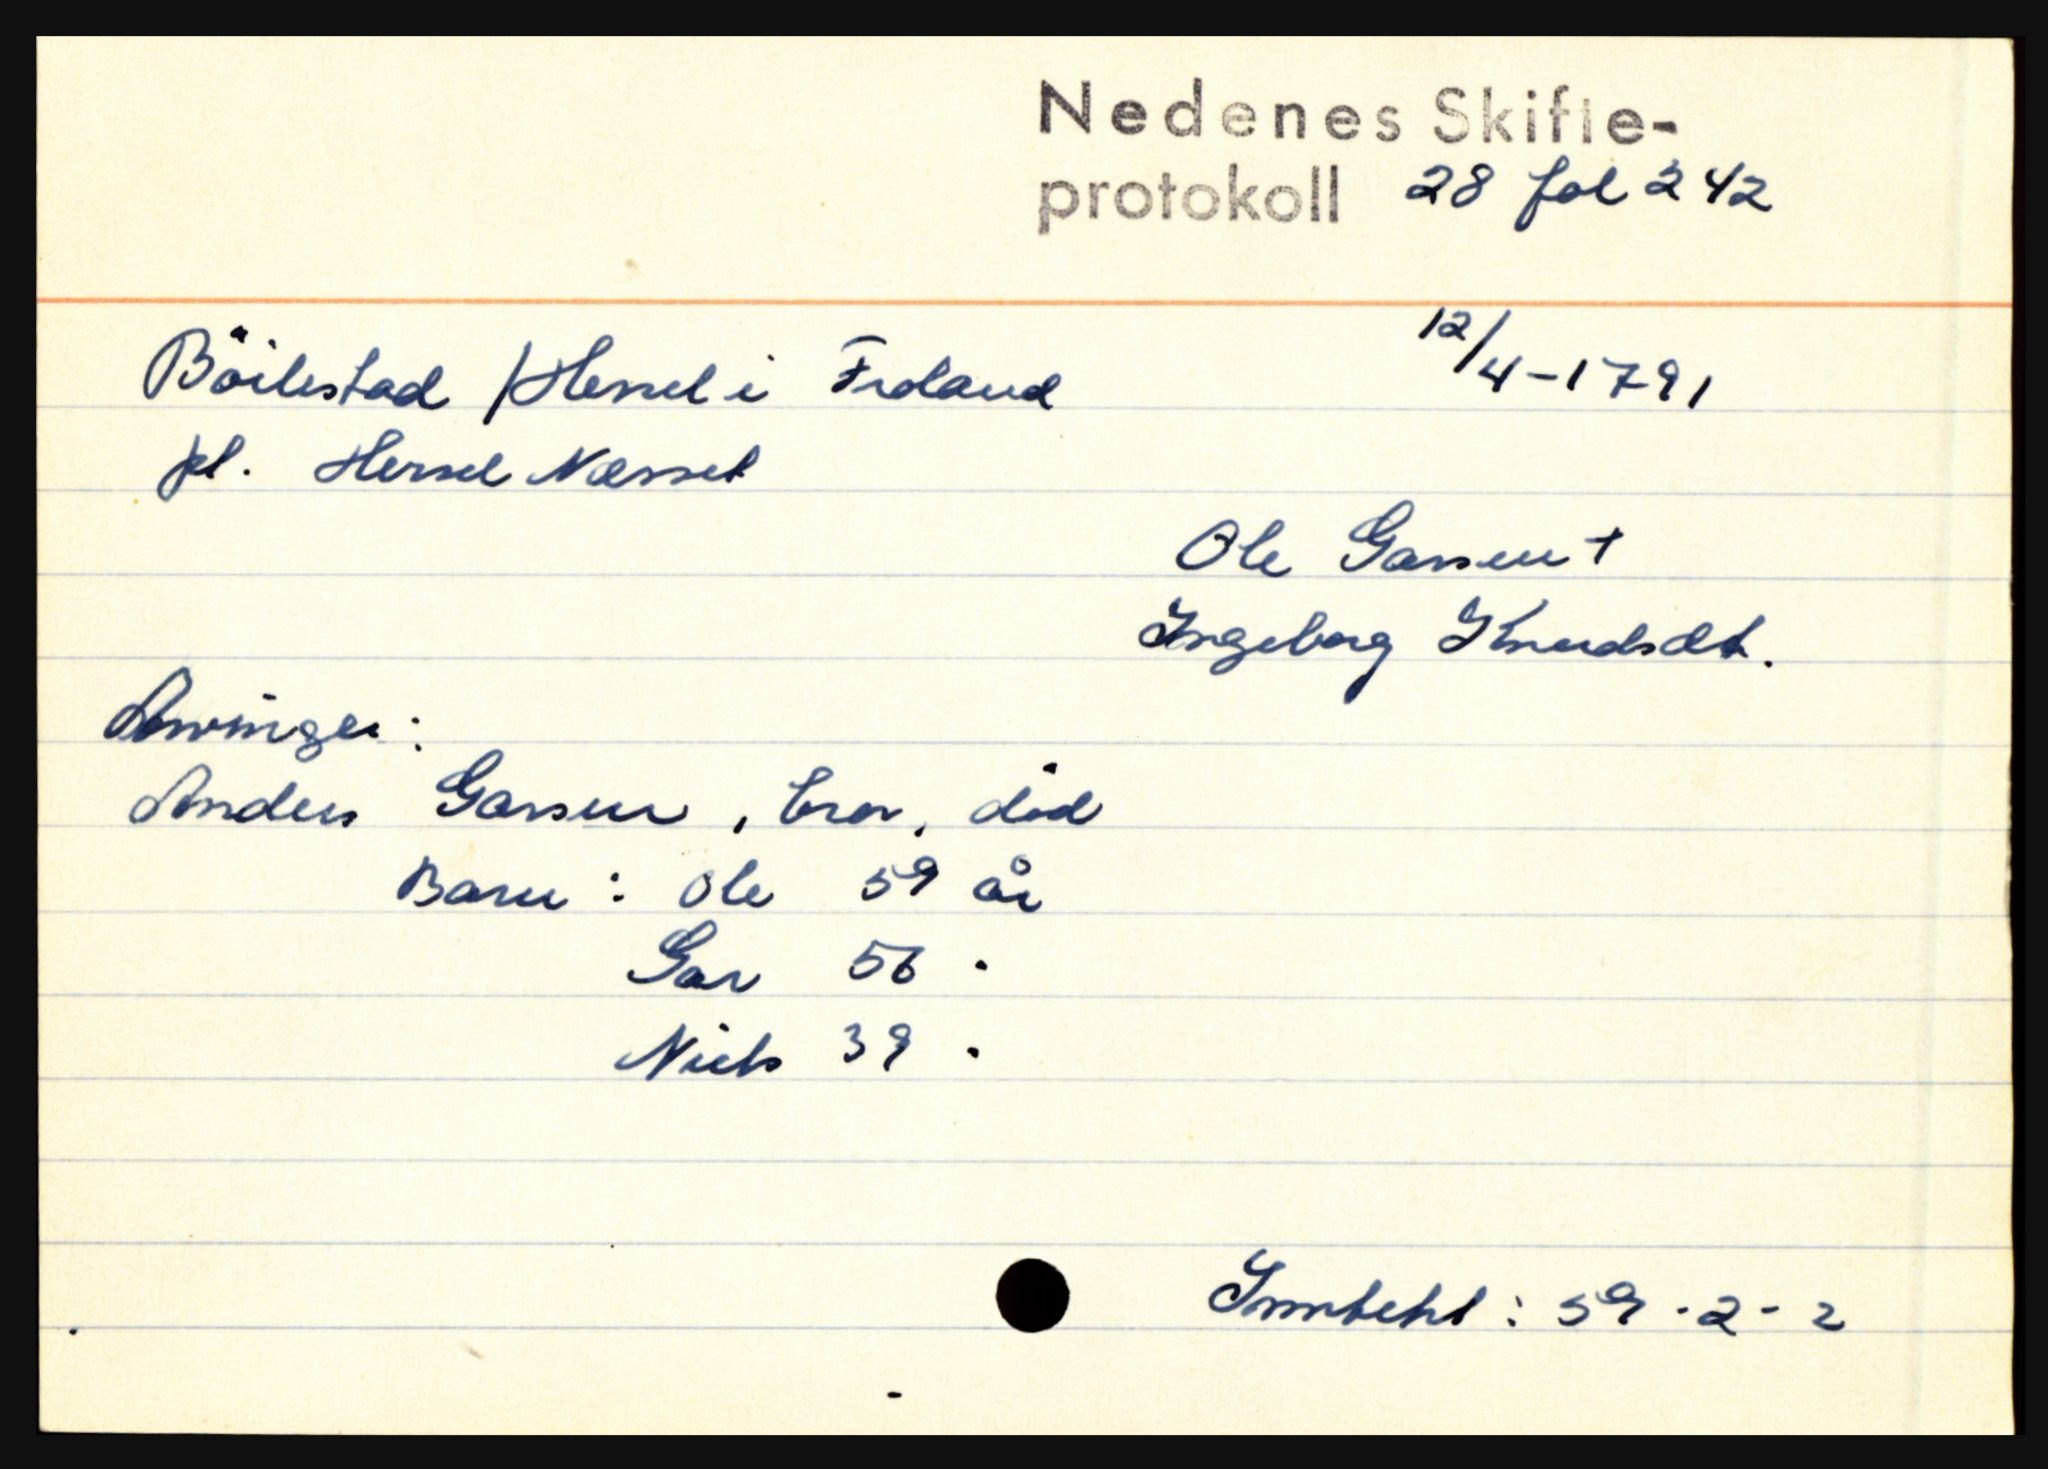 Nedenes Skifte-
protokoll 28 fol 242
Böilestad / Hessel i Froland 12/4-1791
pl. Hessel Næsset
Ole Garssen +
Ingeborg Knudsdt.
Arvinger:
Anders Garssen, bror, död
Barn: Ole 59 år
Gar 56 "
Niels 39 "
Inntekt: 59-2-2